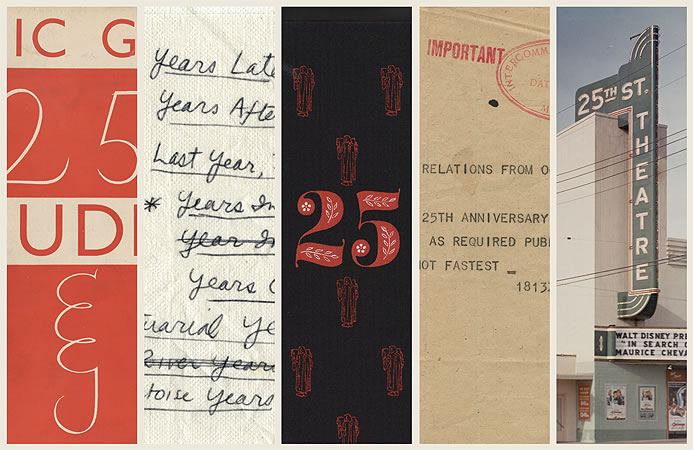 IC G
25
UD
&
Years Late
Years Afte
Last Year,
* Years In
Year In
Years
uarial Ye
River Years
toise Years
25
IMPORTANT
INTERCOMM
DAT
RELATIONS FROM O
25TH ANNIVERSARY
AS REQUIRED PUB
NOT FASTEST _
1813
25TH ST.
THEATRE
WALT DISNEY PR
"IN SEARCH O
MAURICE CHEVA